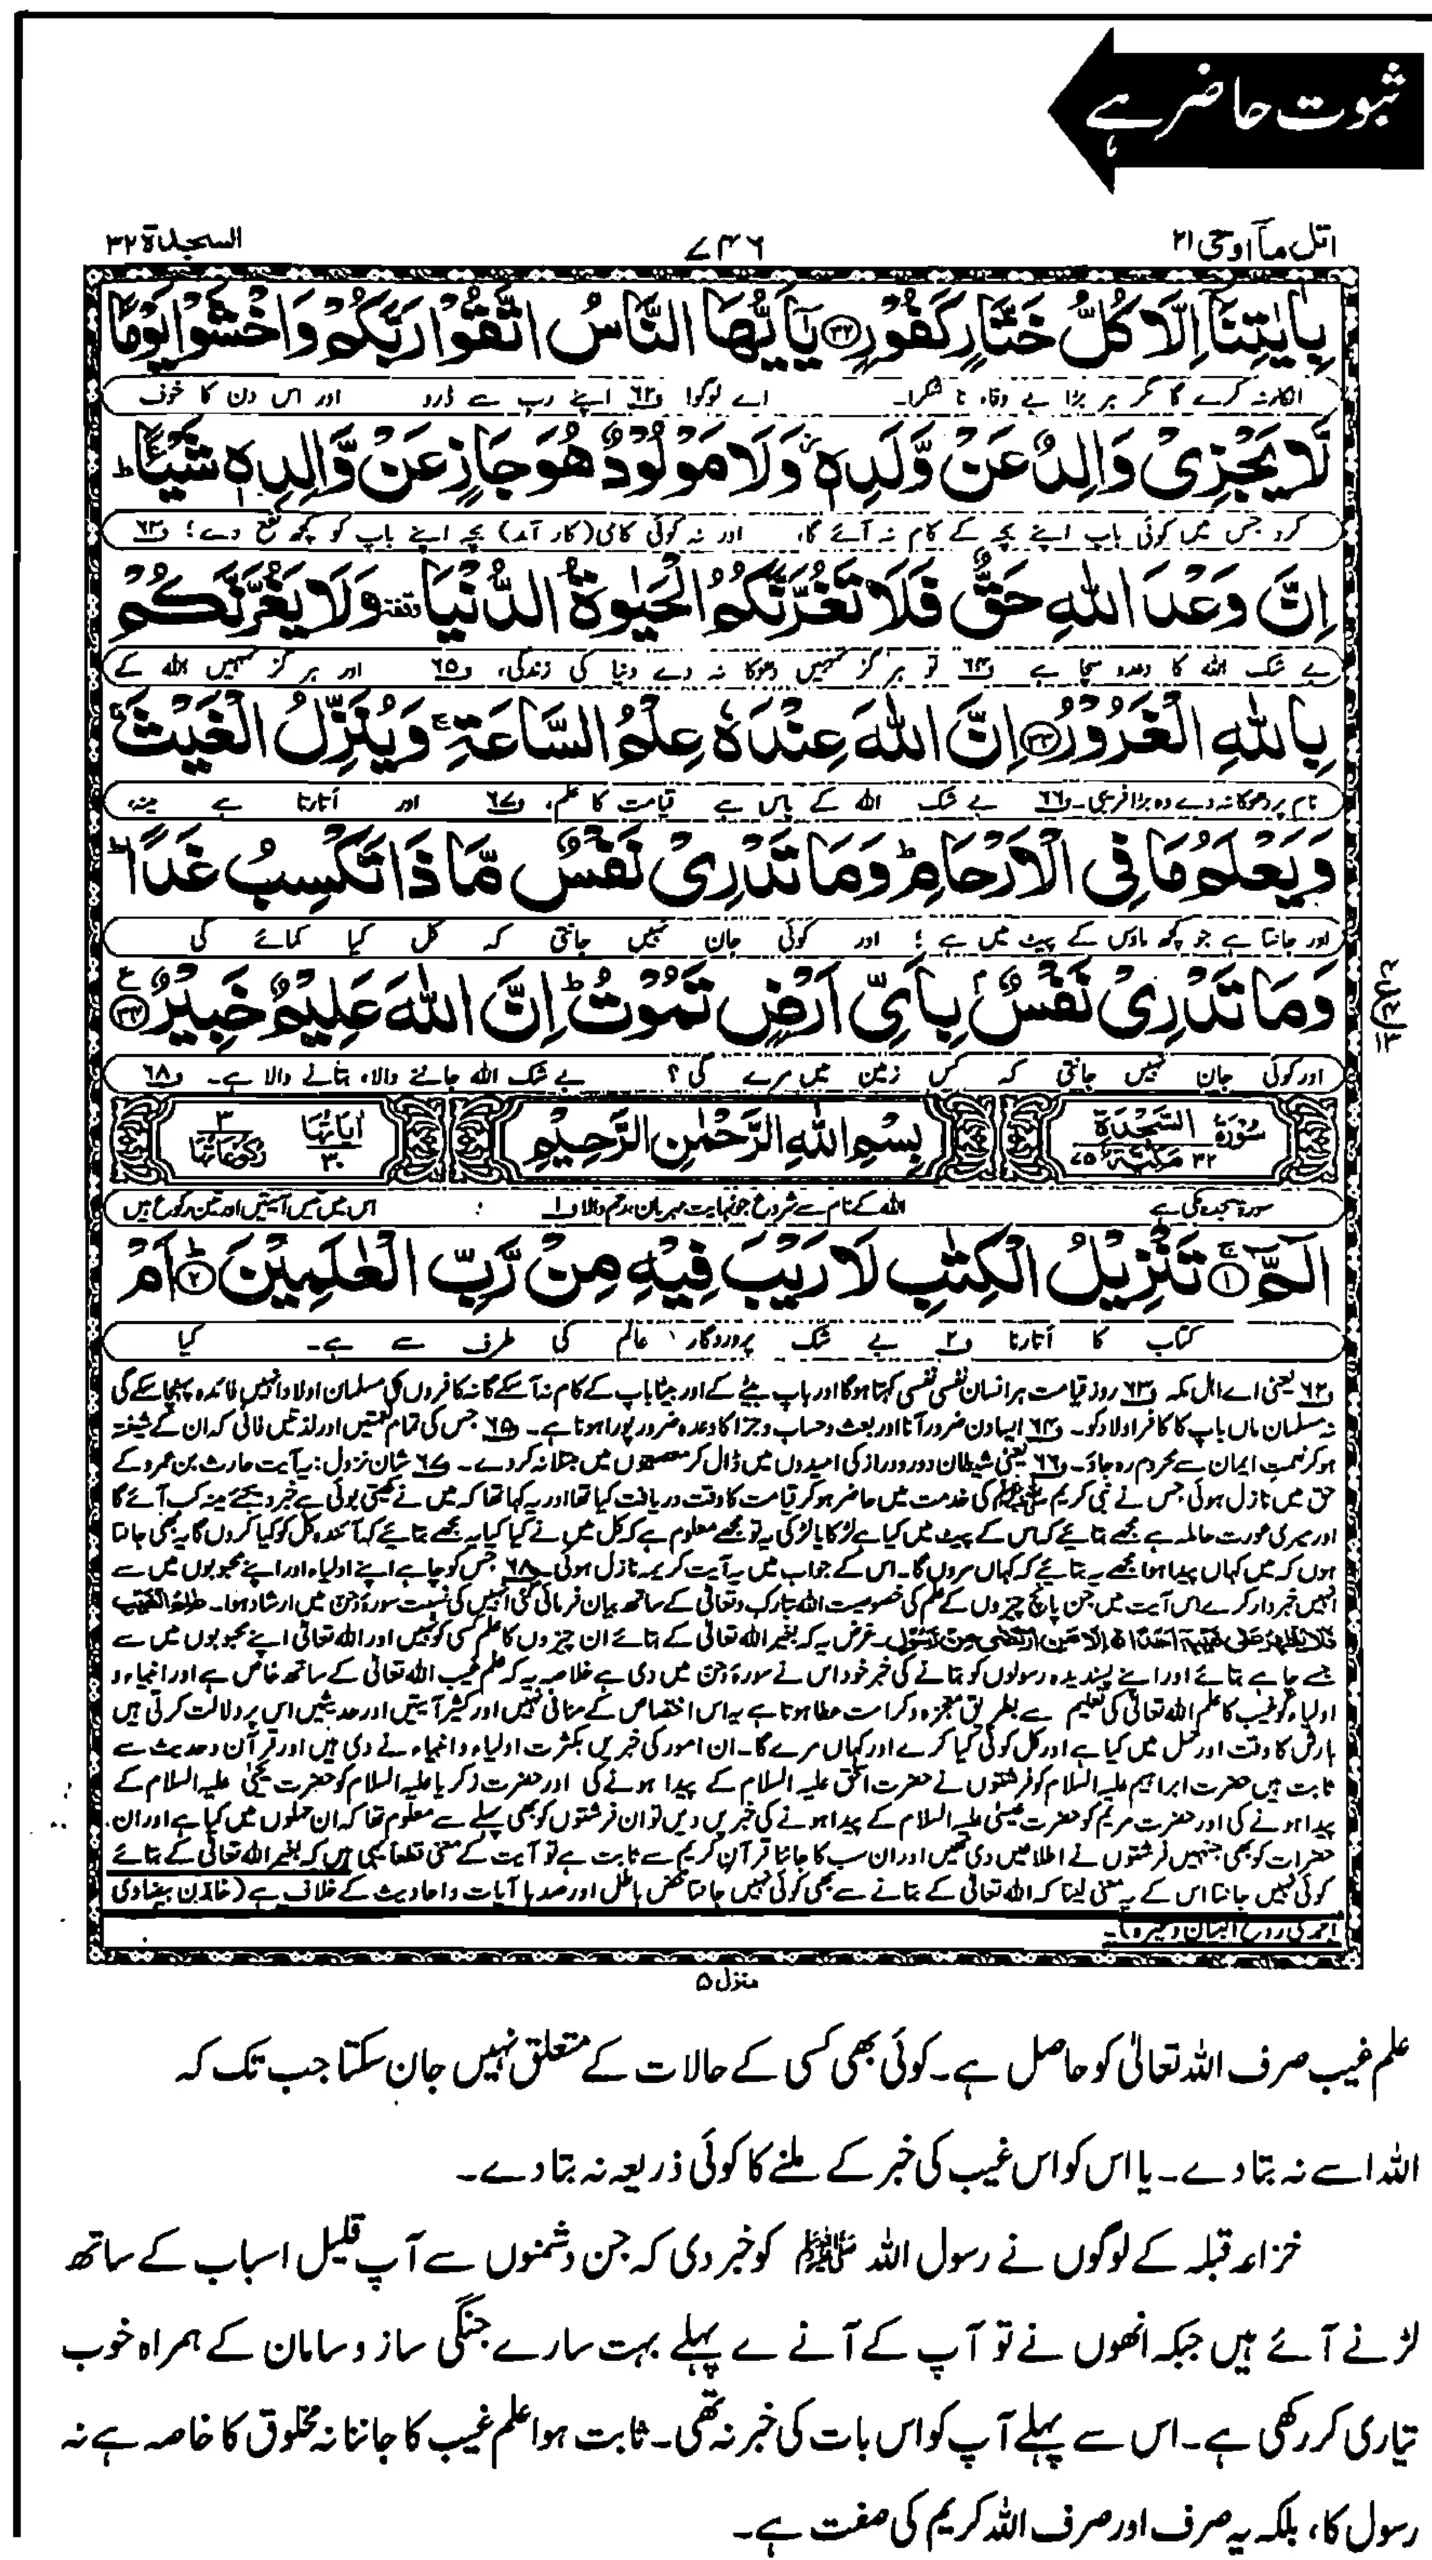 ثبوت حاضر ہے
اتل مآ اوحی ۲۱
۷۴۶
السجدۃ ۳۲
بِاٰیٰتِنَاۤ اِلَّا كُلُّ خَتَّارٍ كَفُوْرٍ ﴿۳۲﴾ یٰۤاَیُّهَا النَّاسُ اتَّقُوْا رَبَّكُمْ وَ اخْشَوْا یَوْمًا
انکار نہ کرے گا مگر ہر بڑا بے وفا، نا شکرا۔ اے لوگو! و۶۲ اپنے رب سے ڈرو اور اس دن کا خوف
لَّا یَجْزِیْ وَالِدٌ عَنْ وَّلَدِهٖ٘ وَ لَا مَوْلُوْدٌ هُوَ جَازٍ عَنْ وَّالِدِهٖ شَیْــٴًـاؕ
کرو جس میں کوئی باپ اپنے بچہ کے کام نہ آئے گا، اور نہ کوئی کامی (کار آمد) بچہ اپنے باپ کو کچھ نفع دے؛ و۶۳
اِنَّ وَعْدَ اللّٰهِ حَقٌّ فَلَا تَغُرَّنَّكُمُ الْحَیٰوةُ الدُّنْیَاٙ وقفۃ وَ لَا یَغُرَّنَّكُمْ
بے شک اللہ کا وعدہ سچا ہے و۶۴ تو ہرگز تمہیں دھوکا نہ دے دنیا کی زندگی، و۶۵ اور ہرگز تمہیں اللہ کے
بِاللّٰهِ الْغَرُوْرُ ﴿۳۳﴾ اِنَّ اللّٰهَ عِنْدَهٗ عِلْمُ السَّاعَةِۚ وَ یُنَزِّلُ الْغَیْثَۚ
نام پر دھوکا نہ دے وہ بڑا فریبی۔ و۶۶ بے شک اللہ کے پاس ہے قیامت کا علم، و۶۷ اور اُتارتا ہے مینہ،
وَ یَعْلَمُ مَا فِی الْاَرْحَامِؕ وَ مَا تَدْرِیْ نَفْسٌ مَّا ذَا تَكْسِبُ غَدًاؕ
اور جانتا ہے جو کچھ ماؤں کے پیٹ میں ہے؛ اور کوئی جان نہیں جانتی کہ کل کیا کمائے گی
وَ مَا تَدْرِیْ نَفْسٌۢ بِاَیِّ اَرْضٍ تَمُوْتُؕ اِنَّ اللّٰهَ عَلِیْمٌ خَبِیْرٌ ﴿۳۴﴾ ع
اور کوئی جان نہیں جانتی کہ کس زمین میں مرے گی؟ بے شک اللہ جاننے والا، بتانے والا ہے۔ و۶۸
سُوْرَۃُ السَّجْدَۃِ ۳۲ مَکِّیَّۃٌ ۷۵
بِسْمِ اللّٰهِ الرَّحْمٰنِ الرَّحِیْمِ
اٰیَاتُهَا ۳۰ رکوعاتها ۳
سورۃ سجدہ مکی ہے اللہ کے نام سے شروع جو نہایت مہربان، رحم والا و۱ اس میں تیس آیتیں اور تین رکوع ہیں
الٓمّٓۚ ﴿۱﴾ تَنْزِیْلُ الْكِتٰبِ لَا رَیْبَ فِیْهِ مِنْ رَّبِّ الْعٰلَمِیْنَؕ ﴿۲﴾ اَمْ
کتاب کا اُتارنا و۲ بے شک پروردگار عالم کی طرف سے ہے۔ کیا
و۶۲ یعنی اے اہل مکہ و۶۳ روز قیامت ہر انسان نفسی نفسی کہتا ہوگا اور باپ بیٹے کے اور بیٹا باپ کے کام نہ آسکے گا نہ کافروں کی مسلمان اولاد انہیں فائدہ پہنچا سکے گی
نہ مسلمان ماں باپ کا کافر اولاد کو۔ و۶۴ ایسا دن ضرور آنا اور بعث و حساب و جزا کا وعدہ ضرور پورا ہوتا ہے۔ و۶۵ جس کی تمام نعمتیں اور لذتیں فانی کہ ان کے شیفتہ
ہو کر نعمت ایمان سے محروم رہ جاؤ۔ و۶۶ یعنی شیطان دور دراز کی امیدوں میں ڈال کر معصیتوں میں مبتلا نہ کردے۔ و۶۷ شان نزول: یہ آیت حارث بن عمرو کے
حق میں نازل ہوئی جس نے نبی کریم ﷺ کی خدمت میں حاضر ہو کر قیامت کا وقت دریافت کیا تھا اور یہ کہا تھا کہ میں نے کھیتی بوئی ہے خبر دیجئے مینہ کب آئے گا
اور میری عورت حاملہ ہے مجھے بتائیے کہ اس کے پیٹ میں کیا ہے لڑکا یا لڑکی یہ تو مجھے معلوم ہے کہ کل میں نے کیا کیا یہ مجھے بتائیے کہ آئندہ کل کو کیا کروں گا یہ بھی جانتا
ہوں کہ میں کہاں پیدا ہوا مجھے یہ بتائیے کہ کہاں مروں گا۔ اس کے جواب میں یہ آیت کریمہ نازل ہوئی۔ و۶۸ جس کو چاہے اپنے اولیاء اور اپنے محبوبوں میں سے
انہیں خبردار کرے اس آیت میں جن پانچ چیزوں کے علم کی خصوصیت اللہ تبارک و تعالیٰ کے ساتھ بیان فرمائی گئی انہیں کی نسبت سورۂ جن میں ارشاد ہوا۔ عٰلِمُ الْغَیْبِ
فَلَا یُظْهِرُ عَلٰی غَیْبِهٖۤ اَحَدًا ۙ اِلَّا مَنِ ارْتَضٰی مِنْ رَّسُوْلٍ۔ غرض یہ کہ بغیر اللہ تعالیٰ کے بتائے ان چیزوں کا علم کسی کو نہیں اور اللہ تعالیٰ اپنے محبوبوں میں سے
جسے چاہے بتائے اور اپنے پسندیدہ رسولوں کو بتانے کی خبر خود اس نے سورۂ جن میں دی ہے خلاصہ یہ کہ علم غیب اللہ تعالیٰ کے ساتھ خاص ہے اور انبیاء و
اولیاء کو غیب کا علم اللہ تعالیٰ کی تعلیم سے بطریق معجزہ و کرامت عطا ہوتا ہے یہ اس اختصاص کے منافی نہیں اور کثیر آیتیں اور حدیثیں اس پر دلالت کرتی ہیں
بارش کا وقت اور حمل میں کیا ہے اور کل کو کیا کرے اور کہاں مرے گا۔ ان امور کی خبریں بکثرت اولیاء و انبیاء نے دی ہیں اور قرآن و حدیث سے
ثابت ہیں حضرت ابراہیم علیہ السلام کو فرشتوں نے حضرت اسحٰق علیہ السلام کے پیدا ہونے کی اور حضرت زکریا علیہ السلام کو حضرت یحییٰ علیہ السلام کے
پیدا ہونے کی اور حضرت مریم کو حضرت عیسیٰ علیہ السلام کے پیدا ہونے کی خبریں دیں تو ان فرشتوں کو بھی پہلے سے معلوم تھا کہ ان حملوں میں کیا ہے اور ان
حضرات کو بھی جنہیں فرشتوں نے اطلاعیں دی تھیں اور ان سب کا جاننا قرآن کریم سے ثابت ہے تو آیت کے معنی قطعاً یہی ہیں کہ بغیر اللہ تعالیٰ کے بتائے
کوئی نہیں جانتا اس کے یہ معنی لینا کہ اللہ تعالیٰ کے بتانے سے بھی کوئی نہیں جانتا محض باطل اور صدہا آیات و احادیث کے خلاف ہے (خازن، بیضاوی
احمدی، روح البیان وغیرہ)۔
منزل ۵
علم غیب صرف اللہ تعالیٰ کو حاصل ہے۔ کوئی بھی کسی کے حالات کے متعلق نہیں جان سکتا جب تک کہ
اللہ اسے نہ بتا دے۔ یا اس کو اس غیب کی خبر کے ملنے کا کوئی ذریعہ نہ بتا دے۔
خزاعہ قبلہ کے لوگوں نے رسول اللہ ﷺ کو خبر دی کہ جن دشمنوں سے آپ قلیل اسباب کے ساتھ
لڑنے آئے ہیں جبکہ انھوں نے تو آپ کے آنے ے پہلے بہت سارے جنگی ساز و سامان کے ہمراہ خوب
تیاری کر رکھی ہے۔ اس سے پہلے آپ کو اس بات کی خبر نہ تھی۔ ثابت ہوا علم غیب کا جاننا نہ مخلوق کا خاصہ ہے نہ
رسول کا، بلکہ یہ صرف اور صرف اللہ کریم کی صفت ہے۔